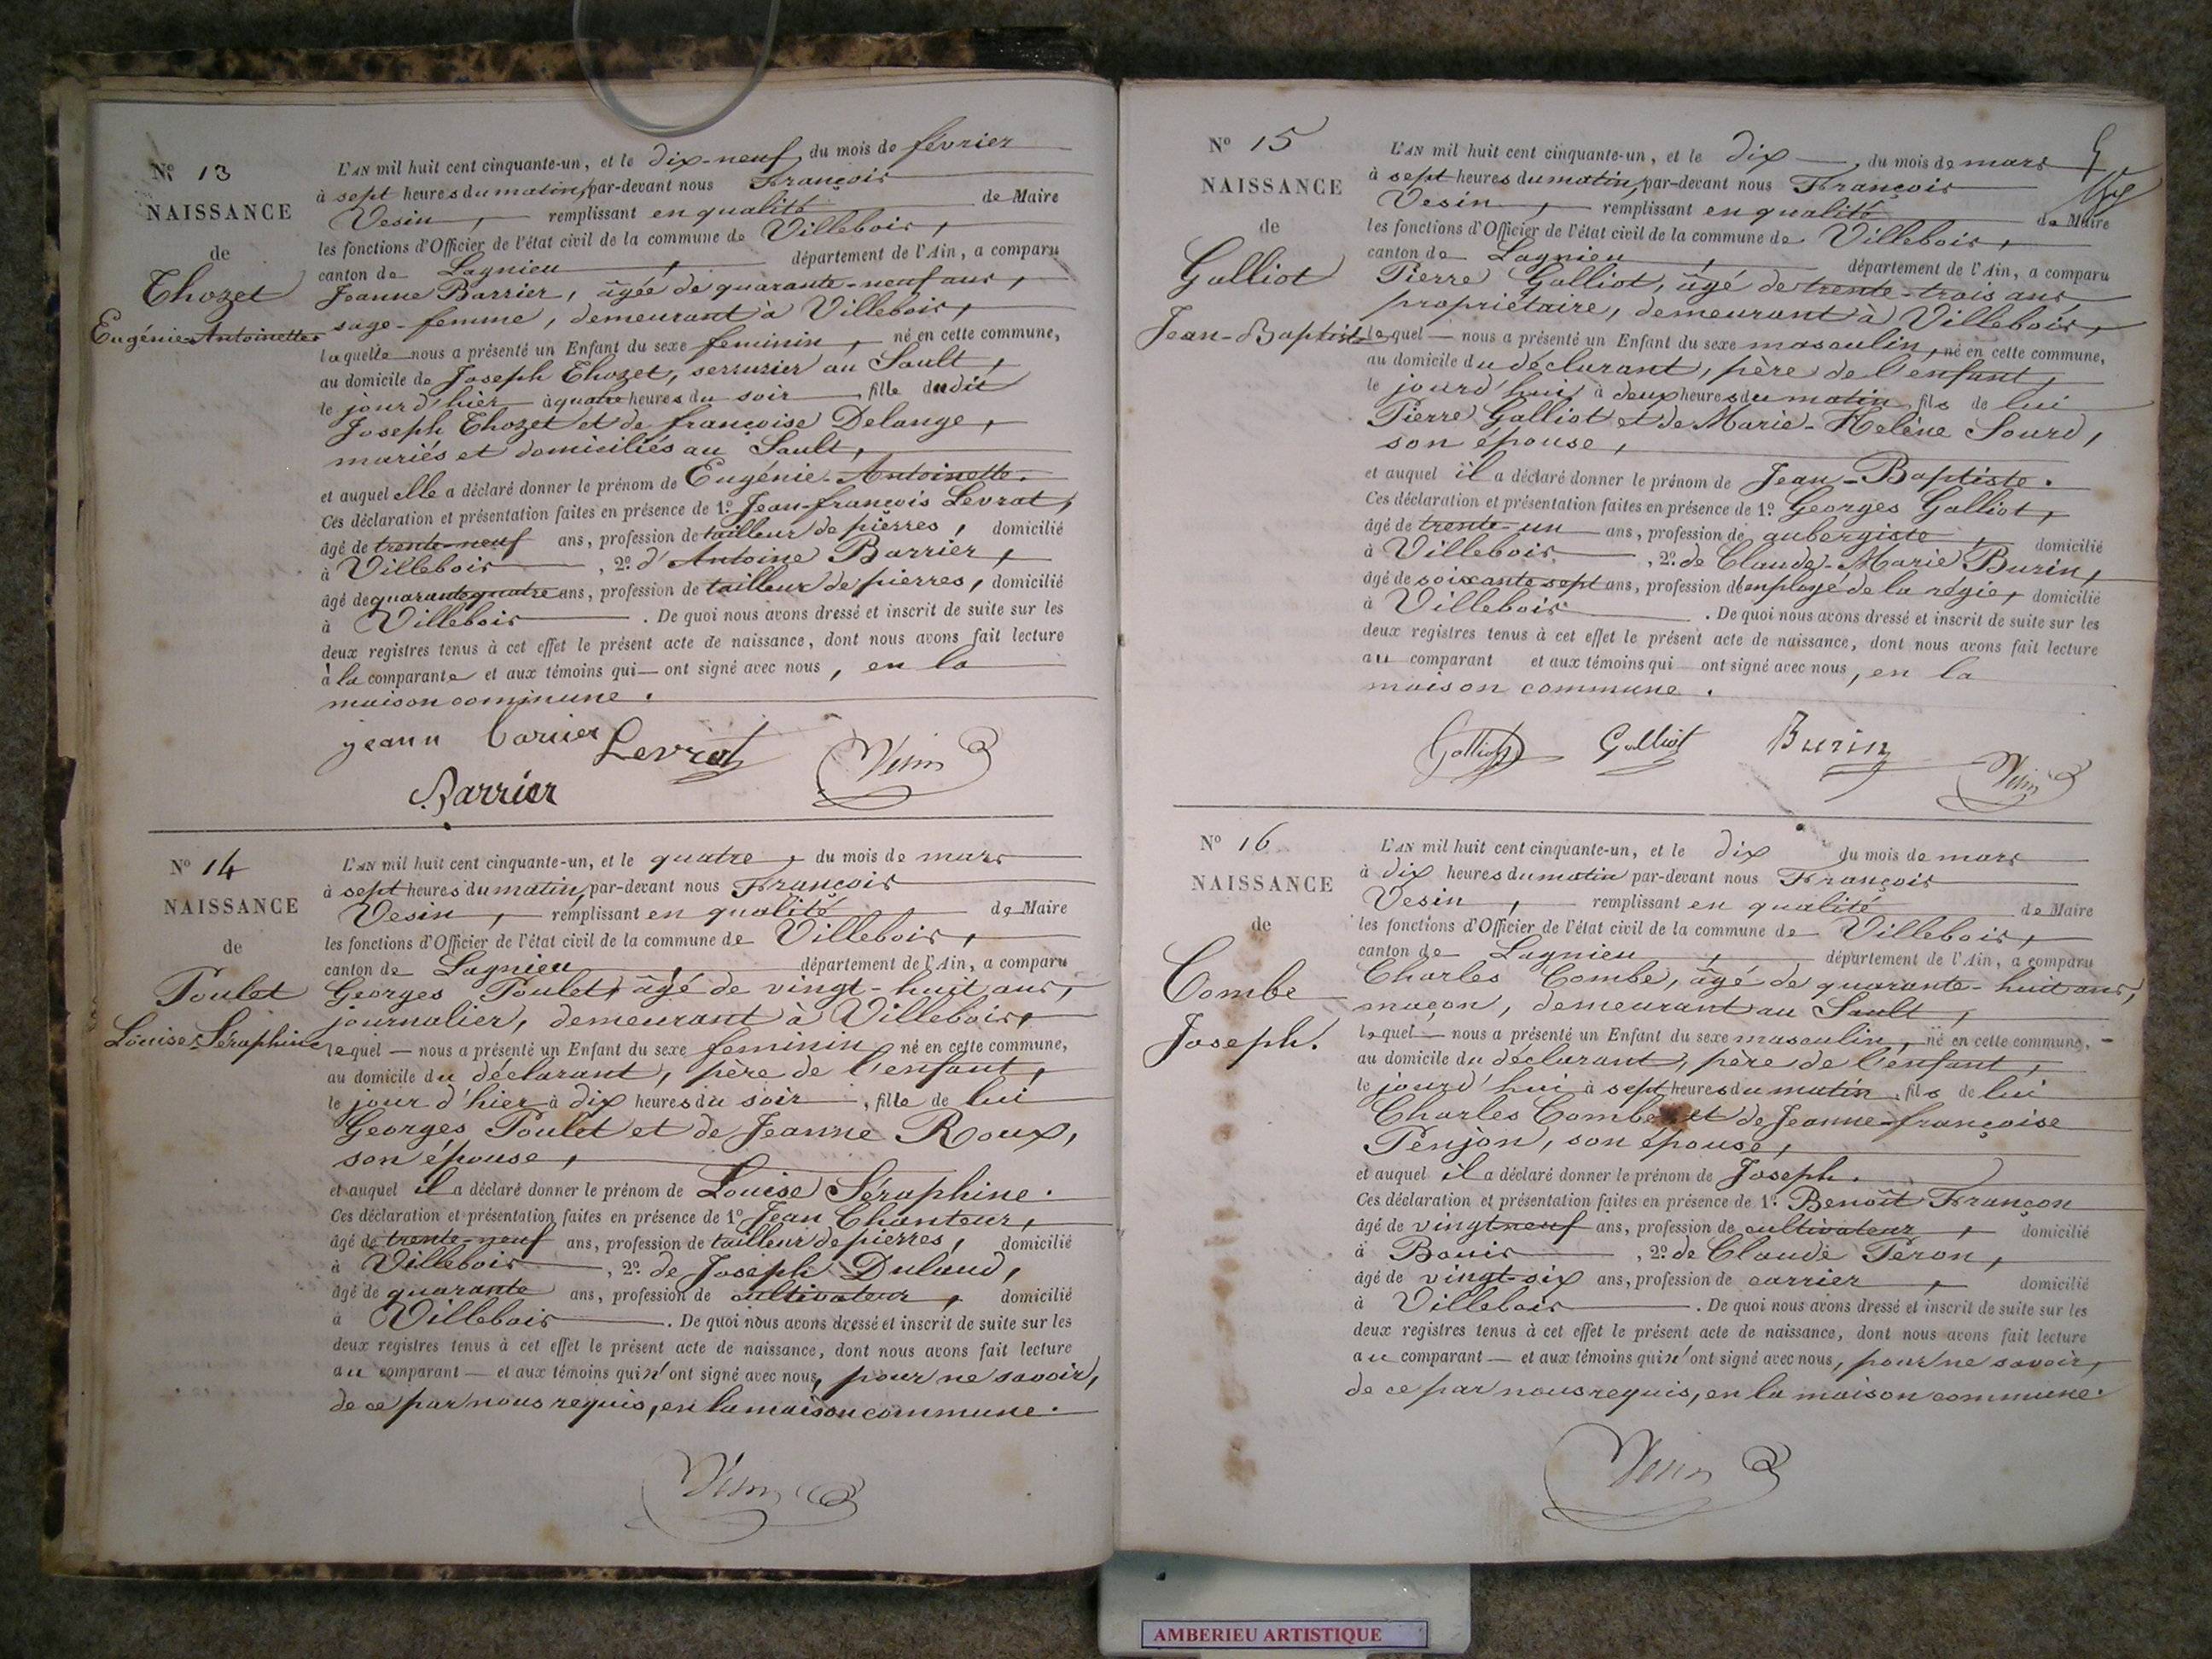 Nº 13
NAISSANCE
de
Thozet
Eugénie-Antoinette
L'AN mil huit cent cinquante-un, et le dix-neuf, du mois de février
à sept heures du matin, par-devant nous François
Vesin, remplissant en qualité de Maire
les fonctions d'Officier de l'état civil de la commune de Villebois,
canton de Lagnieu, département de l'Ain, a comparu
Jeanne Barrier, âgée de quarante-neuf ans,
sage-femme, demeurant à Villebois,
laquelle nous a présenté un Enfant du sexe feminin, né en cette commune,
au domicile de Joseph Thozet, serrurier au Sault,
le jour d'hier à quatre heures du soir, fille dudit
Joseph Thozet et de françoise Delange,
mariés et domiciliés au Sault,
et auquel elle a déclaré donner le prénom de Eugénie-Antoinette.
Ces déclaration et présentation faites en présence de 1º Jean-françois Levrat,
âgé de trente-neuf ans, profession de tailleur de pierres, domicilié
à Villebois, 2º d'Antoine Barrier,
âgé de quarante quatre ans, profession de tailleur de pierres, domicilié
à Villebois. De quoi nous avons dressé et inscrit de suite sur les
deux registres tenus à cet effet le présent acte de naissance, dont nous avons fait lecture
à la comparante et aux témoins qui ont signé avec nous, en la
maison commune.
jeann barrier Levrat Vesin
Barrier
Nº 14
NAISSANCE
de
Poulet
Louise-Séraphine
L'AN mil huit cent cinquante-un, et le quatre, du mois de mars
à sept heures du matin, par-devant nous François
Vesin, remplissant en qualité de Maire
les fonctions d'Officier de l'état civil de la commune de Villebois,
canton de Lagnieu, département de l'Ain, a comparu
Georges Poulet, âgé de vingt-huit ans,
journalier, demeurant à Villebois,
lequel nous a présenté un Enfant du sexe feminin, né en cette commune,
au domicile du déclarant, père de l'enfant,
le jour d'hier à dix heures du soir, fille de lui
Georges Poulet et de Jeanne Roux,
son épouse,
et auquel il a déclaré donner le prénom de Louise Séraphine.
Ces déclaration et présentation faites en présence de 1º Jean Chanteur,
âgé de trente-neuf ans, profession de tailleur de pierres, domicilié
à Villebois, 2º de Joseph Dulaud,
âgé de quarante ans, profession de cultivateur, domicilié
à Villebois. De quoi nous avons dressé et inscrit de suite sur les
deux registres tenus à cet effet le présent acte de naissance, dont nous avons fait lecture
au comparant et aux témoins qui n'ont signé avec nous, pour ne savoir,
de ce par nous requis, en la maison commune.
Vesin
Nº 15
NAISSANCE
de
Galliot
Jean-Baptiste
L'AN mil huit cent cinquante-un, et le dix, du mois de mars
à sept heures du matin, par-devant nous François
Vesin, remplissant en qualité de Maire
les fonctions d'Officier de l'état civil de la commune de Villebois,
canton de Lagnieu, département de l'Ain, a comparu
Pierre Galliot, âgé de trente-trois ans,
propriétaire, demeurant à Villebois,
lequel nous a présenté un Enfant du sexe masculin, né en cette commune,
au domicile du déclarant, père de l'enfant,
le jourd'hui à deux heures du matin, fils de lui
Pierre Galliot et de Marie-Helène Sourd,
son épouse,
et auquel il a déclaré donner le prénom de Jean-Baptiste.
Ces déclaration et présentation faites en présence de 1º Georges Galliot,
âgé de trente-un ans, profession de aubergiste, domicilié
à Villebois, 2º de Claude-Marie Burin,
âgé de soixante sept ans, profession d'employé de la régie, domicilié
à Villebois. De quoi nous avons dressé et inscrit de suite sur les
deux registres tenus à cet effet le présent acte de naissance, dont nous avons fait lecture
au comparant et aux témoins qui ont signé avec nous, en la
maison commune.
Galliot Galliot Burin Vesin
Nº 16
NAISSANCE
de
Combe
Joseph.
L'AN mil huit cent cinquante-un, et le dix du mois de mars
à dix heures du matin par-devant nous François
Vesin, remplissant en qualité de Maire
les fonctions d'Officier de l'état civil de la commune de Villebois,
canton de Lagnieu, département de l'Ain, a comparu
Charles Combe, âgé de quarante-huit ans,
maçon, demeurant au Sault,
lequel nous a présenté un Enfant du sexe masculin, né en cette commune,
au domicile du déclarant, père de l'enfant,
le jourd'hui à sept heures du matin, fils de lui
Charles Combe et de Jeanne-françoise
Penjon, son épouse,
et auquel il a déclaré donner le prénom de Joseph.
Ces déclaration et présentation faites en présence de 1º Benoît Françon
âgé de vingt neuf ans, profession de cultivateur, domicilié
à Bouis, 2º de Claude Péron,
âgé de vingt-six ans, profession de carrier, domicilié
à Villebois. De quoi nous avons dressé et inscrit de suite sur les
deux registres tenus à cet effet le présent acte de naissance, dont nous avons fait lecture
au comparant et aux témoins qui n'ont signé avec nous, pour ne savoir,
de ce par nous requis, en la maison commune.
Vesin
AMBERIEU ARTISTIQUE